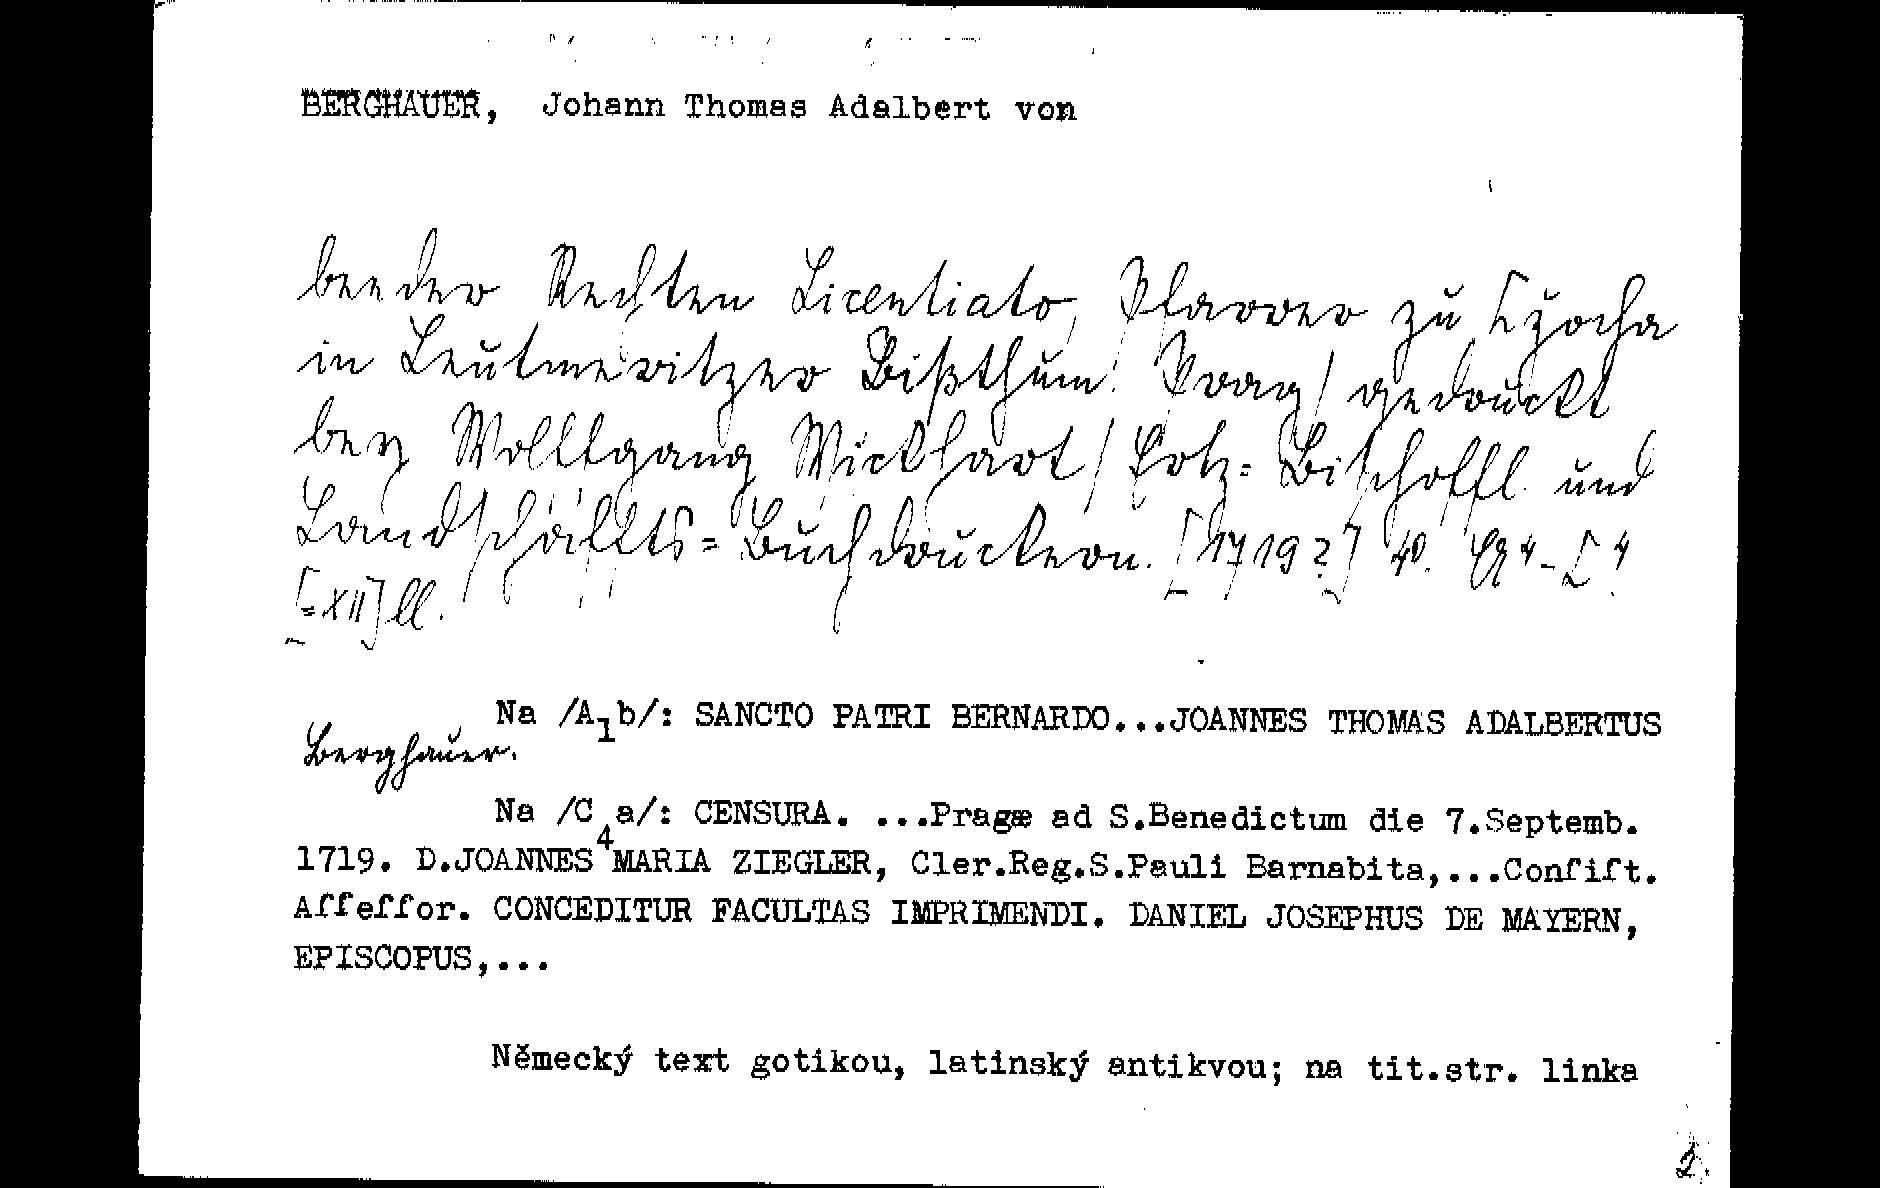 BERGHAUER, Johann Thomas Adalbert von
beeder Rechten Licentiato, Pfarrer zu Czocha
in Leutmeritzer Bißthum. Prag/ gedruckt
bey Wolffgang Wickhart/ Ertz=Bischoffl. und
Landschäffts=Buchdruckern. [1719?] 4º. A⁴-C⁴
[=XII] ll.
Na /A₁b/: SANCTO PATRI BERNARDO...JOANNES THOMAS ADALBERTUS
Berghauer.
Na /C₄a/: CENSURA. ...Pragæ ad S.Benedictum die 7.Septemb.
1719. D.JOANNES MARIA ZIEGLER, Cler.Reg.S.Pauli Barnabita,...Conſiſt.
Aſſeſſor. CONCEDITUR FACULTAS IMPRIMENDI. DANIEL JOSEPHUS DE MAYERN,
EPISCOPUS,...
Německý text gotikou, latinský antikvou; na tit.str. linka
2.